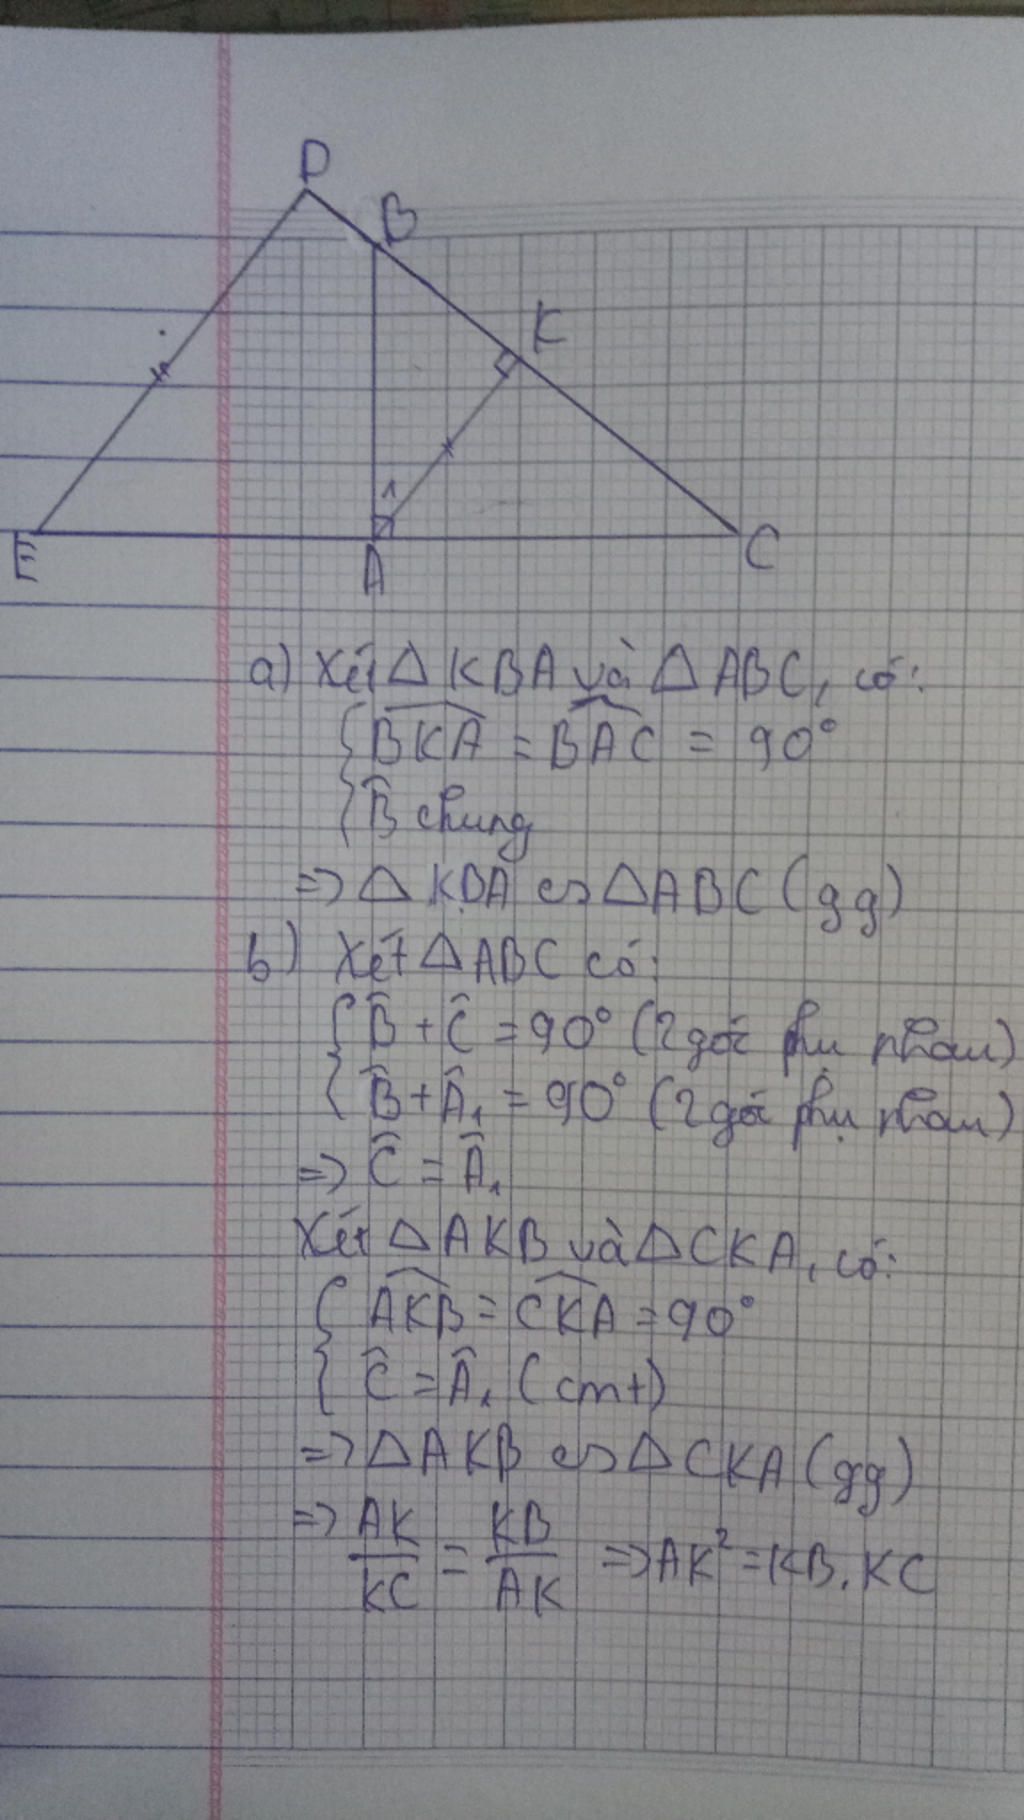 D
B
K
1
E
A
C
a) Xét △ KBA và △ ABC, có:
{ \widehat{BKA} = \widehat{BAC} = 90°
B̂ chung
=> △ KBA ∽ △ABC (gg)
b) Xét △ABC có:
{ B̂ + Ĉ = 90° (2 góc phụ nhau)
B̂ + Â₁ = 90° (2 góc phụ nhau)
=> Ĉ = Â₁
Xét △AKB và △CKA, có:
{ \widehat{AKB} = \widehat{CKA} = 90°
Ĉ = Â₁ (cmt)
=> △AKB ∽ △CKA (gg)
=> AK/KC = KB/AK => AK² = KB.KC